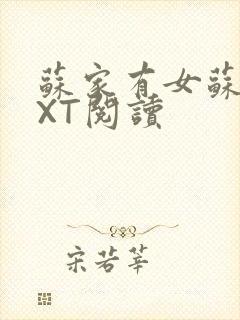 蘇家有女蘇
XT閱讀
宋若莘